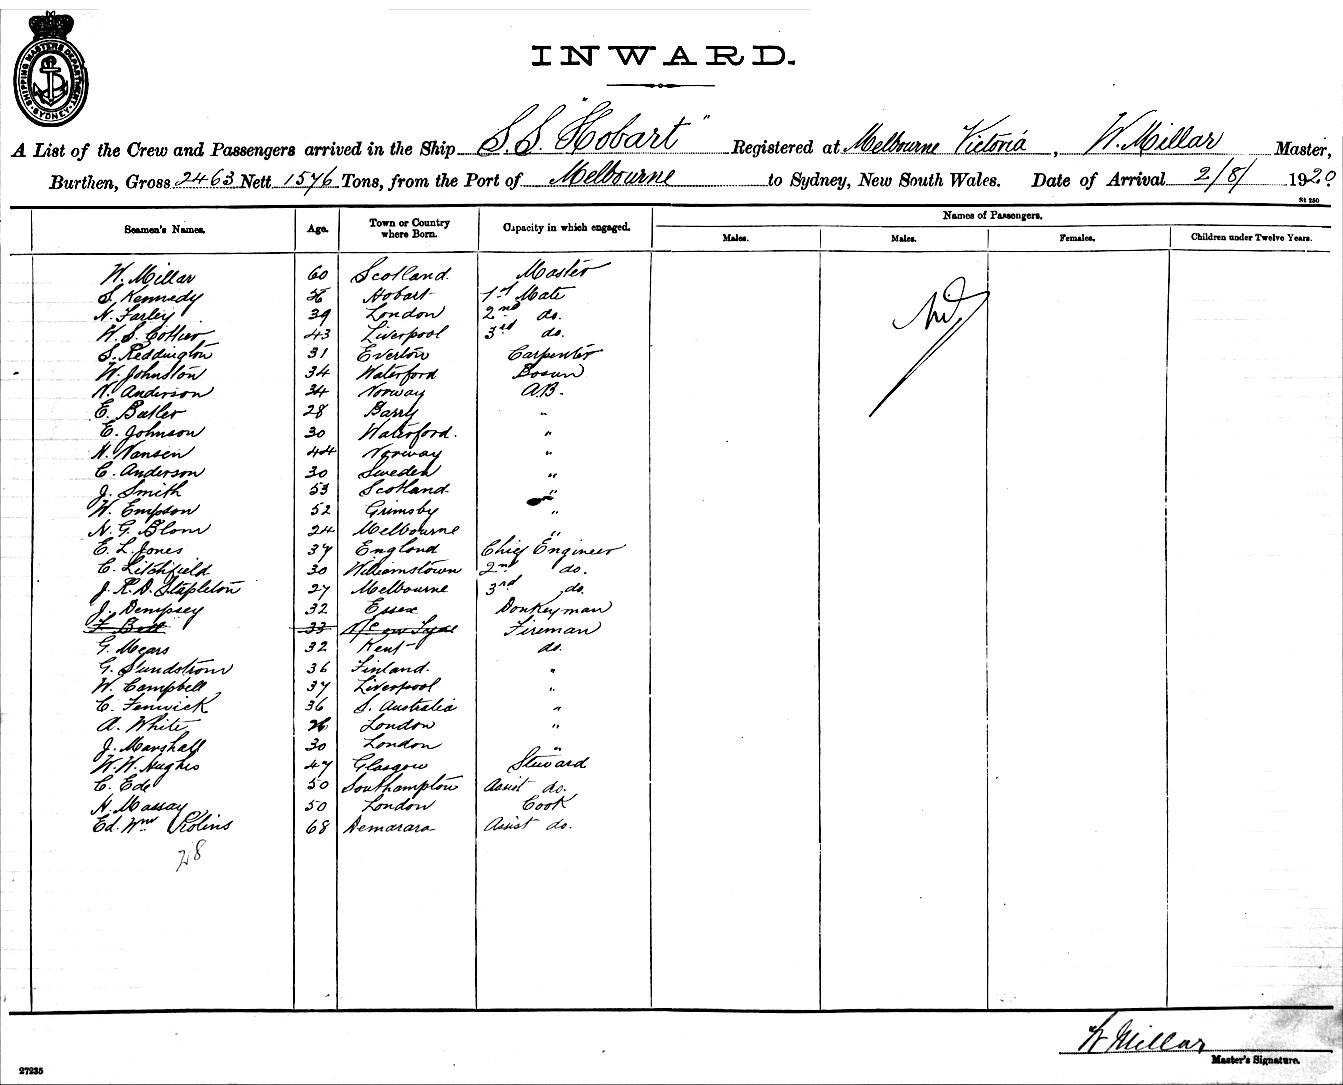 SHIPPING MASTERS DEPARTMENT SYDNEY
INWARD.
A List of the Crew and Passengers arrived in the Ship S.S. "Hobart" Registered at Melbourne Victoria, W. Millar Master,
Burthen, Gross 2463 Nett 1576 Tons, from the Port of Melbourne to Sydney, New South Wales. Date of Arrival 2/8/ 1920
St 250
Seamen's Names. Age. Town or Country where Born. Capacity in which engaged. Names of Passengers.
Males. Males. Females. Children under Twelve Years.
W. Millar 60 Scotland. Master
S. Kennedy Hobart 1st Mate
N. Farley 39 London 2nd do.
W. S. Cottier 43 Liverpool 3rd do.
S. Reddington 31 Everton Carpenter
W. Johnston 34 Waterford Bosun
N. Anderson 34 Norway A.B.
E. Butler 28 Barry "
E. Johnson 30 Waterford. "
H. Hansen 44 Norway "
C. Anderson 30 Sweden "
J. Smith 53 Scotland "
W. Empson 52 Grimsby "
N. G. Blom 24 Melbourne "
E. L. Jones 37 England Chief Engineer
C. Litchfield 30 Williamstown 2nd do.
J. R. D. Stapleton 27 Melbourne 3rd do.
J. Dempsey 32 Essex Donkeyman
F. Bell 33 Fireman
G. Mears 32 Kent do.
G. Sundstrom 36 Finland. "
W. Campbell 37 Liverpool "
C. Fenwick 36 S. Australia "
A. White 26 London "
J. Marshall 30 London "
W. W. Hughes 47 Glasgow Steward
C. Ede 50 Southampton Assist do.
H. Massay 50 London Cook
Ed. Wm 68 Demarara Assist do.
28
W Millar
Master's Signature.
27235